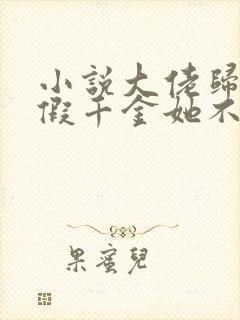 小說大佬歸
假千金她不
果蜜兒